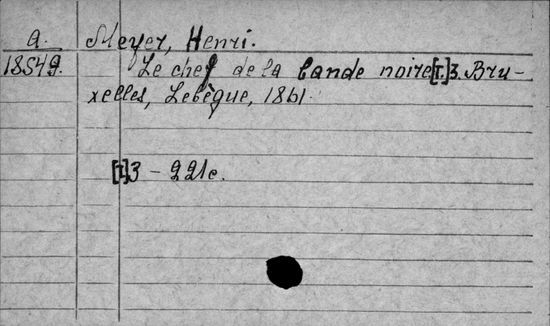 a. Meyer, Henri.
18549. Le chef de la bande noire [I.] 3. Bru-
xelles, Lebègue, 1861.
[I] 3 – 221c.